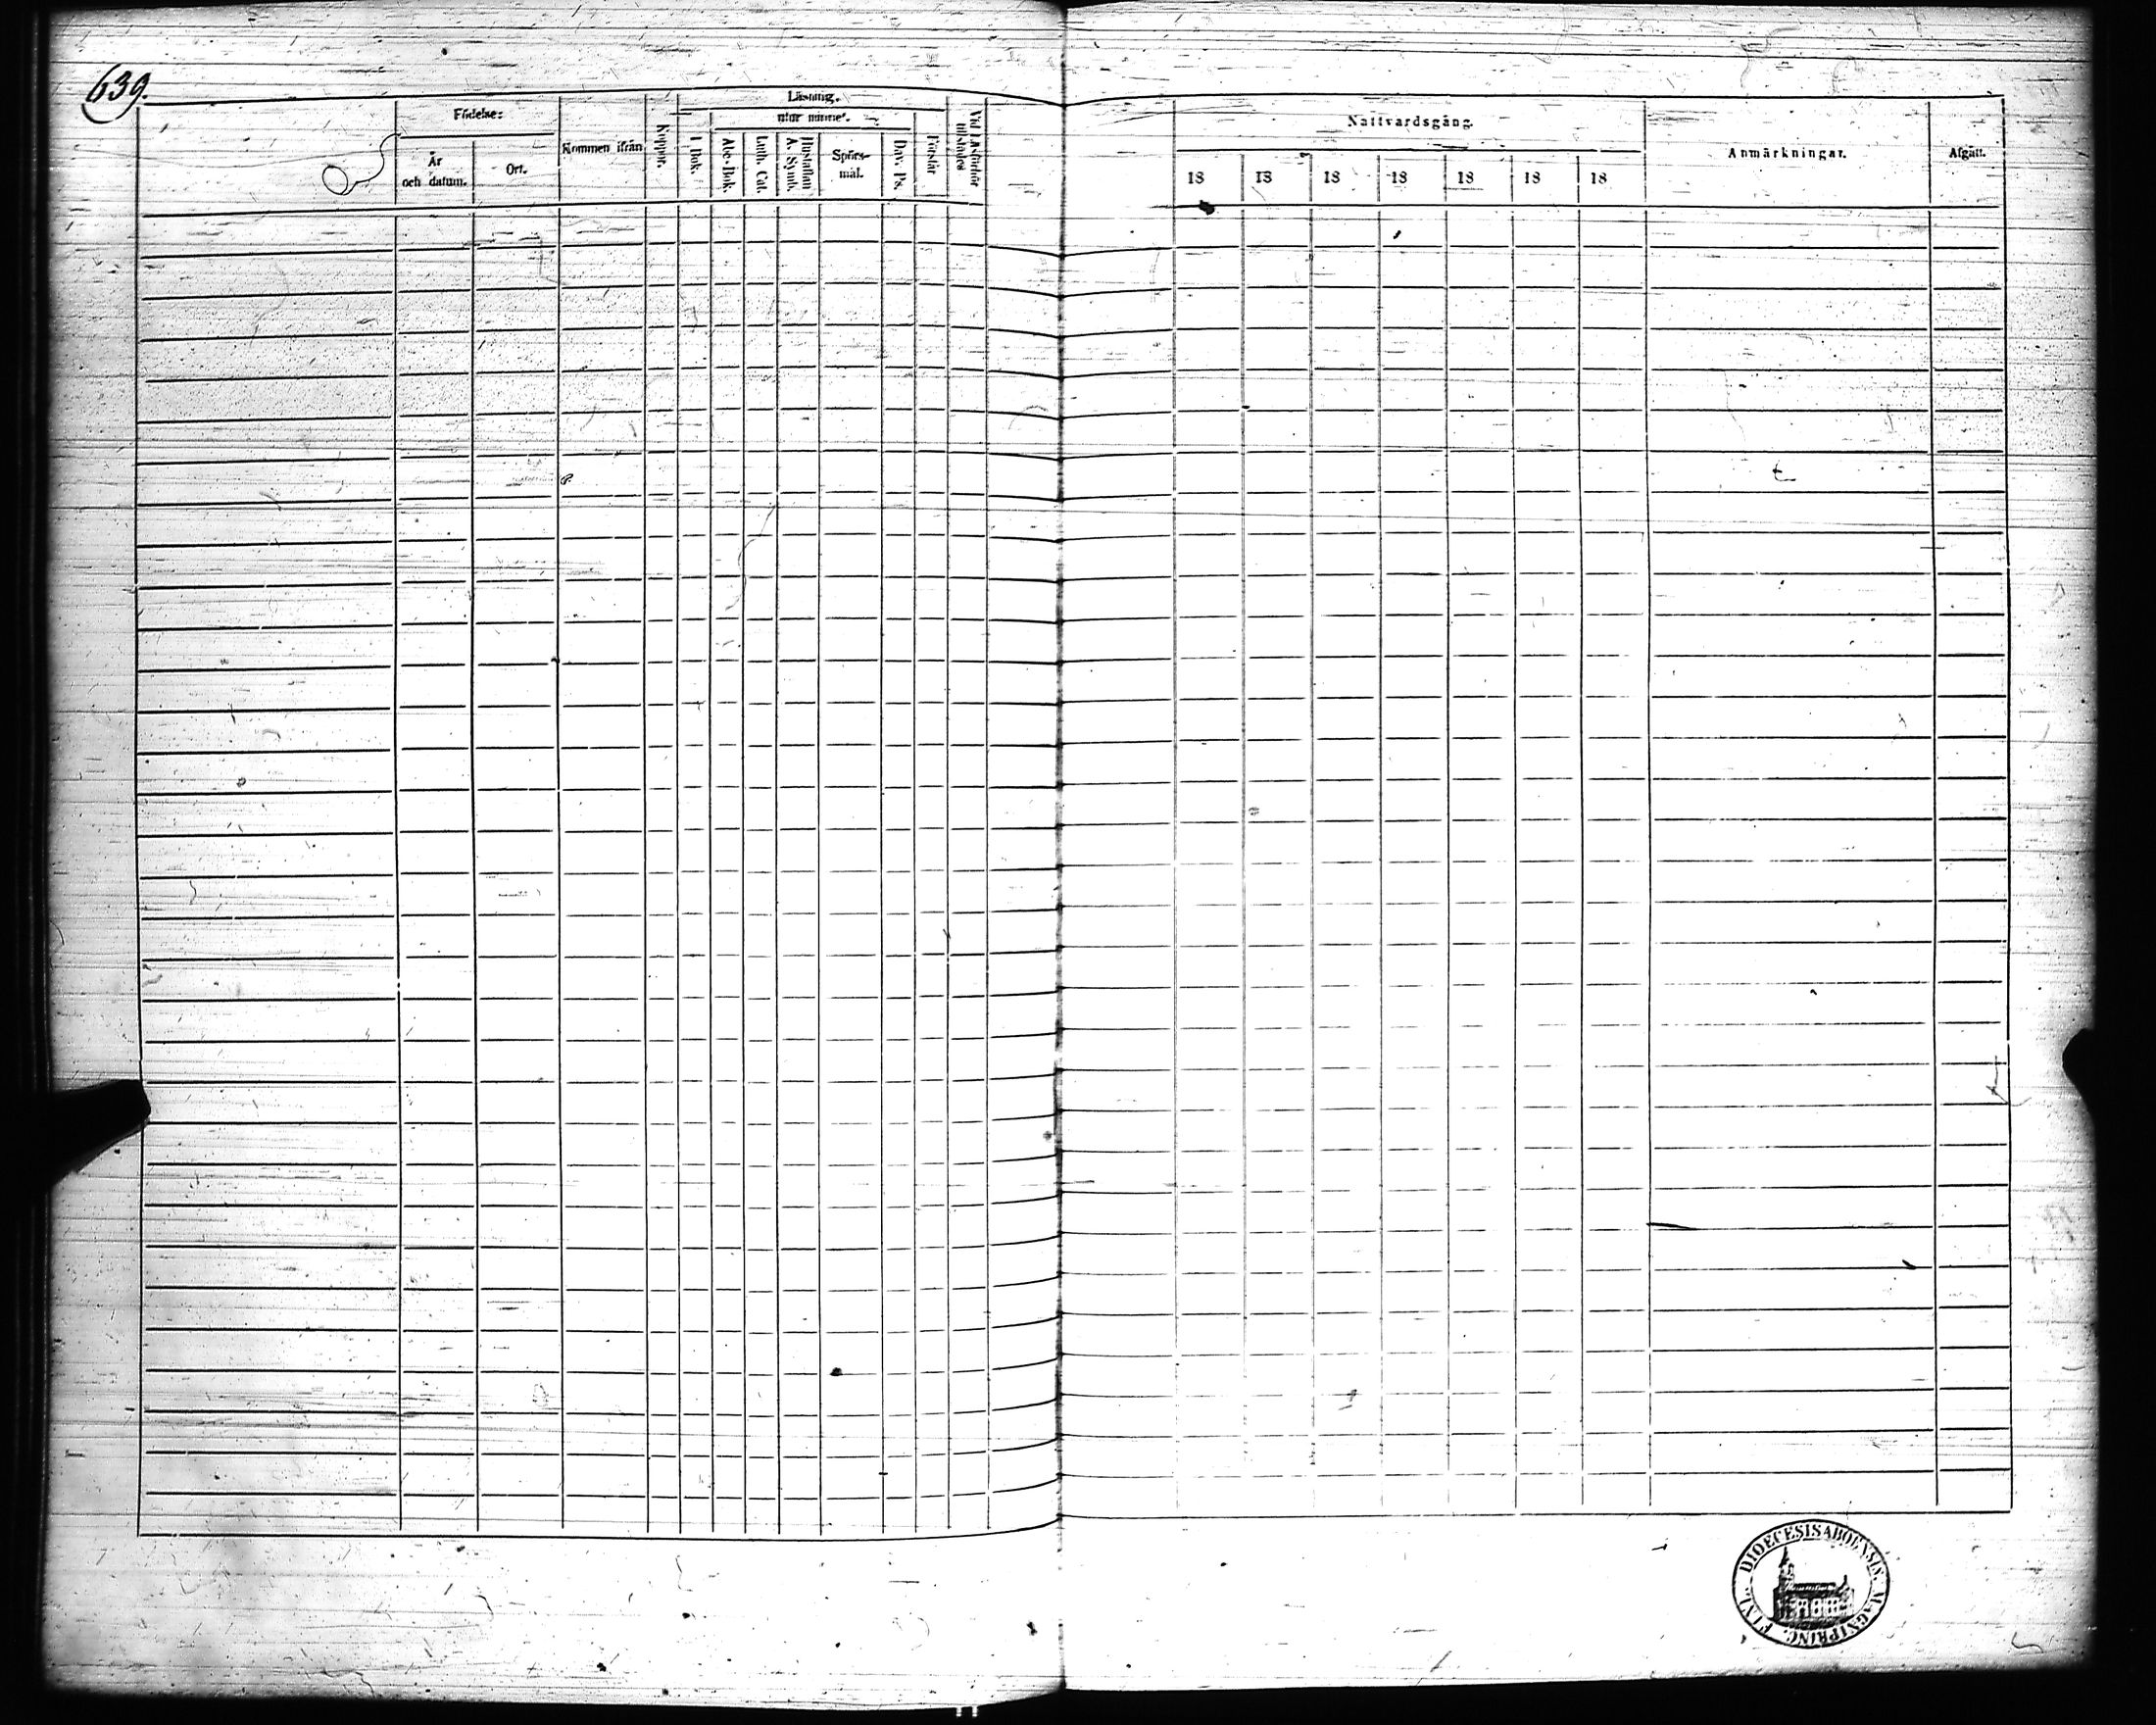 639.
Födelse:
År
och datum.
Ort.
Kommen ifrån
Koppor.
Läsning.
I Bok.
utur minnet.
Abc-Bok.
Luth. Cat.
Hustaflan
A. Symb.
Spörs-
mål.
Dav. Ps.
Förstår
Vid Läsförhör
tillstädes
Nattvardsgång.
18 18 18 18 18 18 18
Anmärkningar.
Afgått.
DIOECESIS ABOENSIS. MAGNI PRINC. FINL.